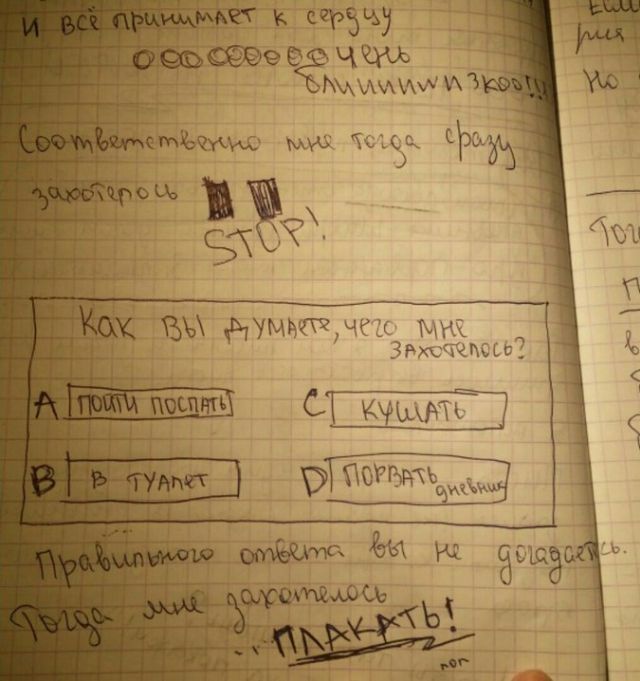 и всё принимает к сердцу
ооооооооочень
блииииизкоо!!!
Соответственно мне тогда сразу
захотелось
STOP!
Как вы думаете, чего мне
захотелось?
A пойти поспать
C кушать
B в туалет
D порвать
дневник
Правильного ответа вы не догадаетесь.
Тогда мне захотелось
...ПЛАКАТЬ!
Но